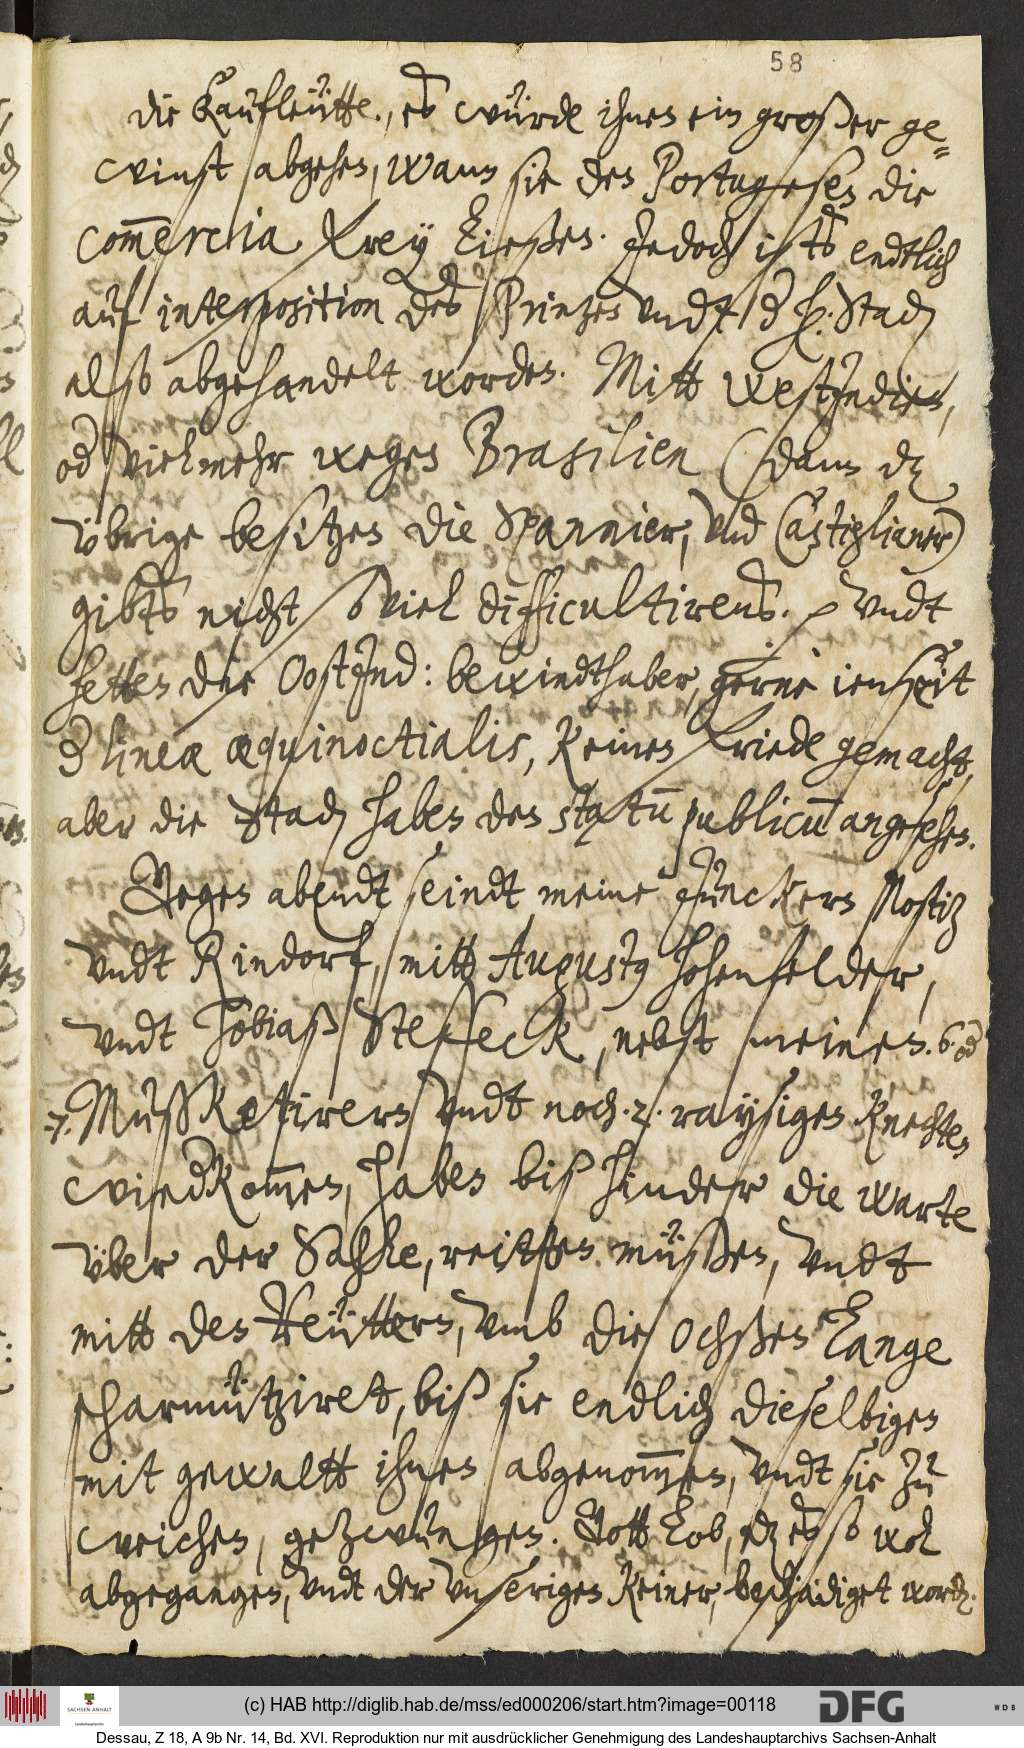 58
die Kaufleütte, es würde ihnen ein großer ge-
winst abgehen, wann sie den Portugesen die
commercia frey ließen. Jedoch ists endtlich
auf interposition des Printzen undt d h. Stad
also abgehandelt worden. Mitt WestJndien,
od vielmehr wegen Brasilien (dann dz
übrige besitzen die Spannier, vnd Castiglianer)
gibts nicht so viel difficultirens. vndt
hetten die OostJnd: bewindthaber, gerne ienseit
d lineæ æquinoctialis, keinen friede gemacht,
aber die Stad haben den statū publicū angesehen.
Gegen abendt seindt meine Juncker Nostitz
vndt Rindorf, mitt Augusto Hohenfelder,
vndt Tobiaß Steffeck, nebst meinen .6. od
.7. Mußketirern vndt noch .2. raysigen knechten
wiedkom̄en, haben biß hinder die warte
über der Sahle, reitten müßen, vndt
mitt den Reüttern, vmb die Ochßen lange
scharmütziret, biß sie endlich dieselbigen
mit gewaltt ihnen abgenom̄en, vndt sie zu
weichen, gezwungen. Gott lob, dz es so wol
abgegangen, vndt der vnserigen keiner, beschädiget worden.
SACHSEN-ANHALT
Landeshauptarchiv
(c) HAB http://diglib.hab.de/mss/ed000206/start.htm?image=00118
DFG
WDB
Dessau, Z 18, A 9b Nr. 14, Bd. XVI. Reproduktion nur mit ausdrücklicher Genehmigung des Landeshauptarchivs Sachsen-Anhalt